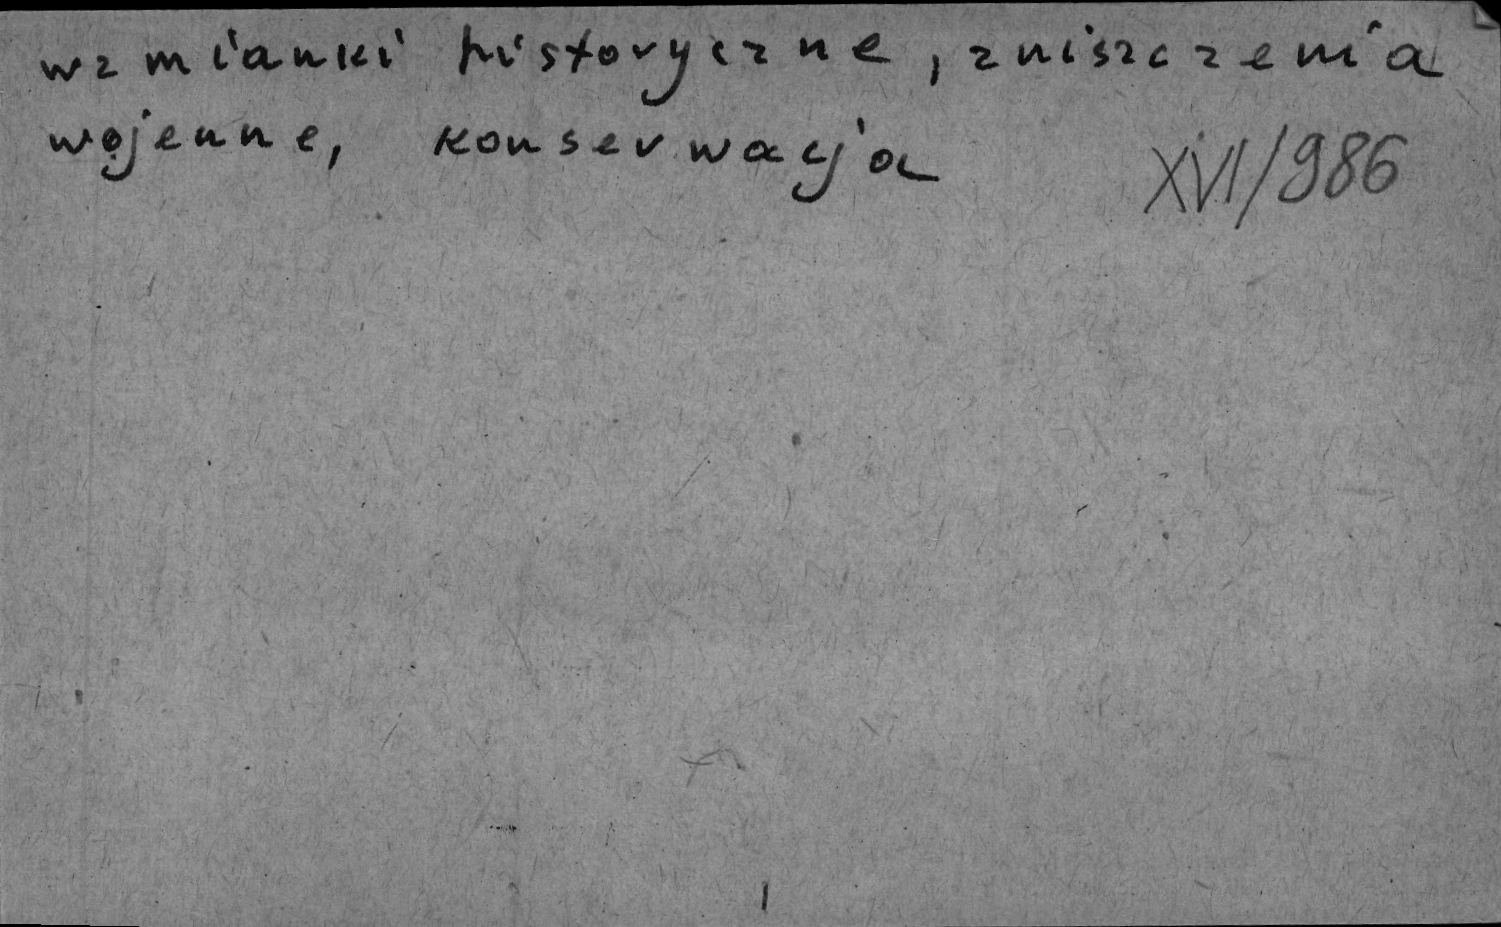 wzmianki historyczne, zniszczenia
wojenne, konserwacja
XVI/986